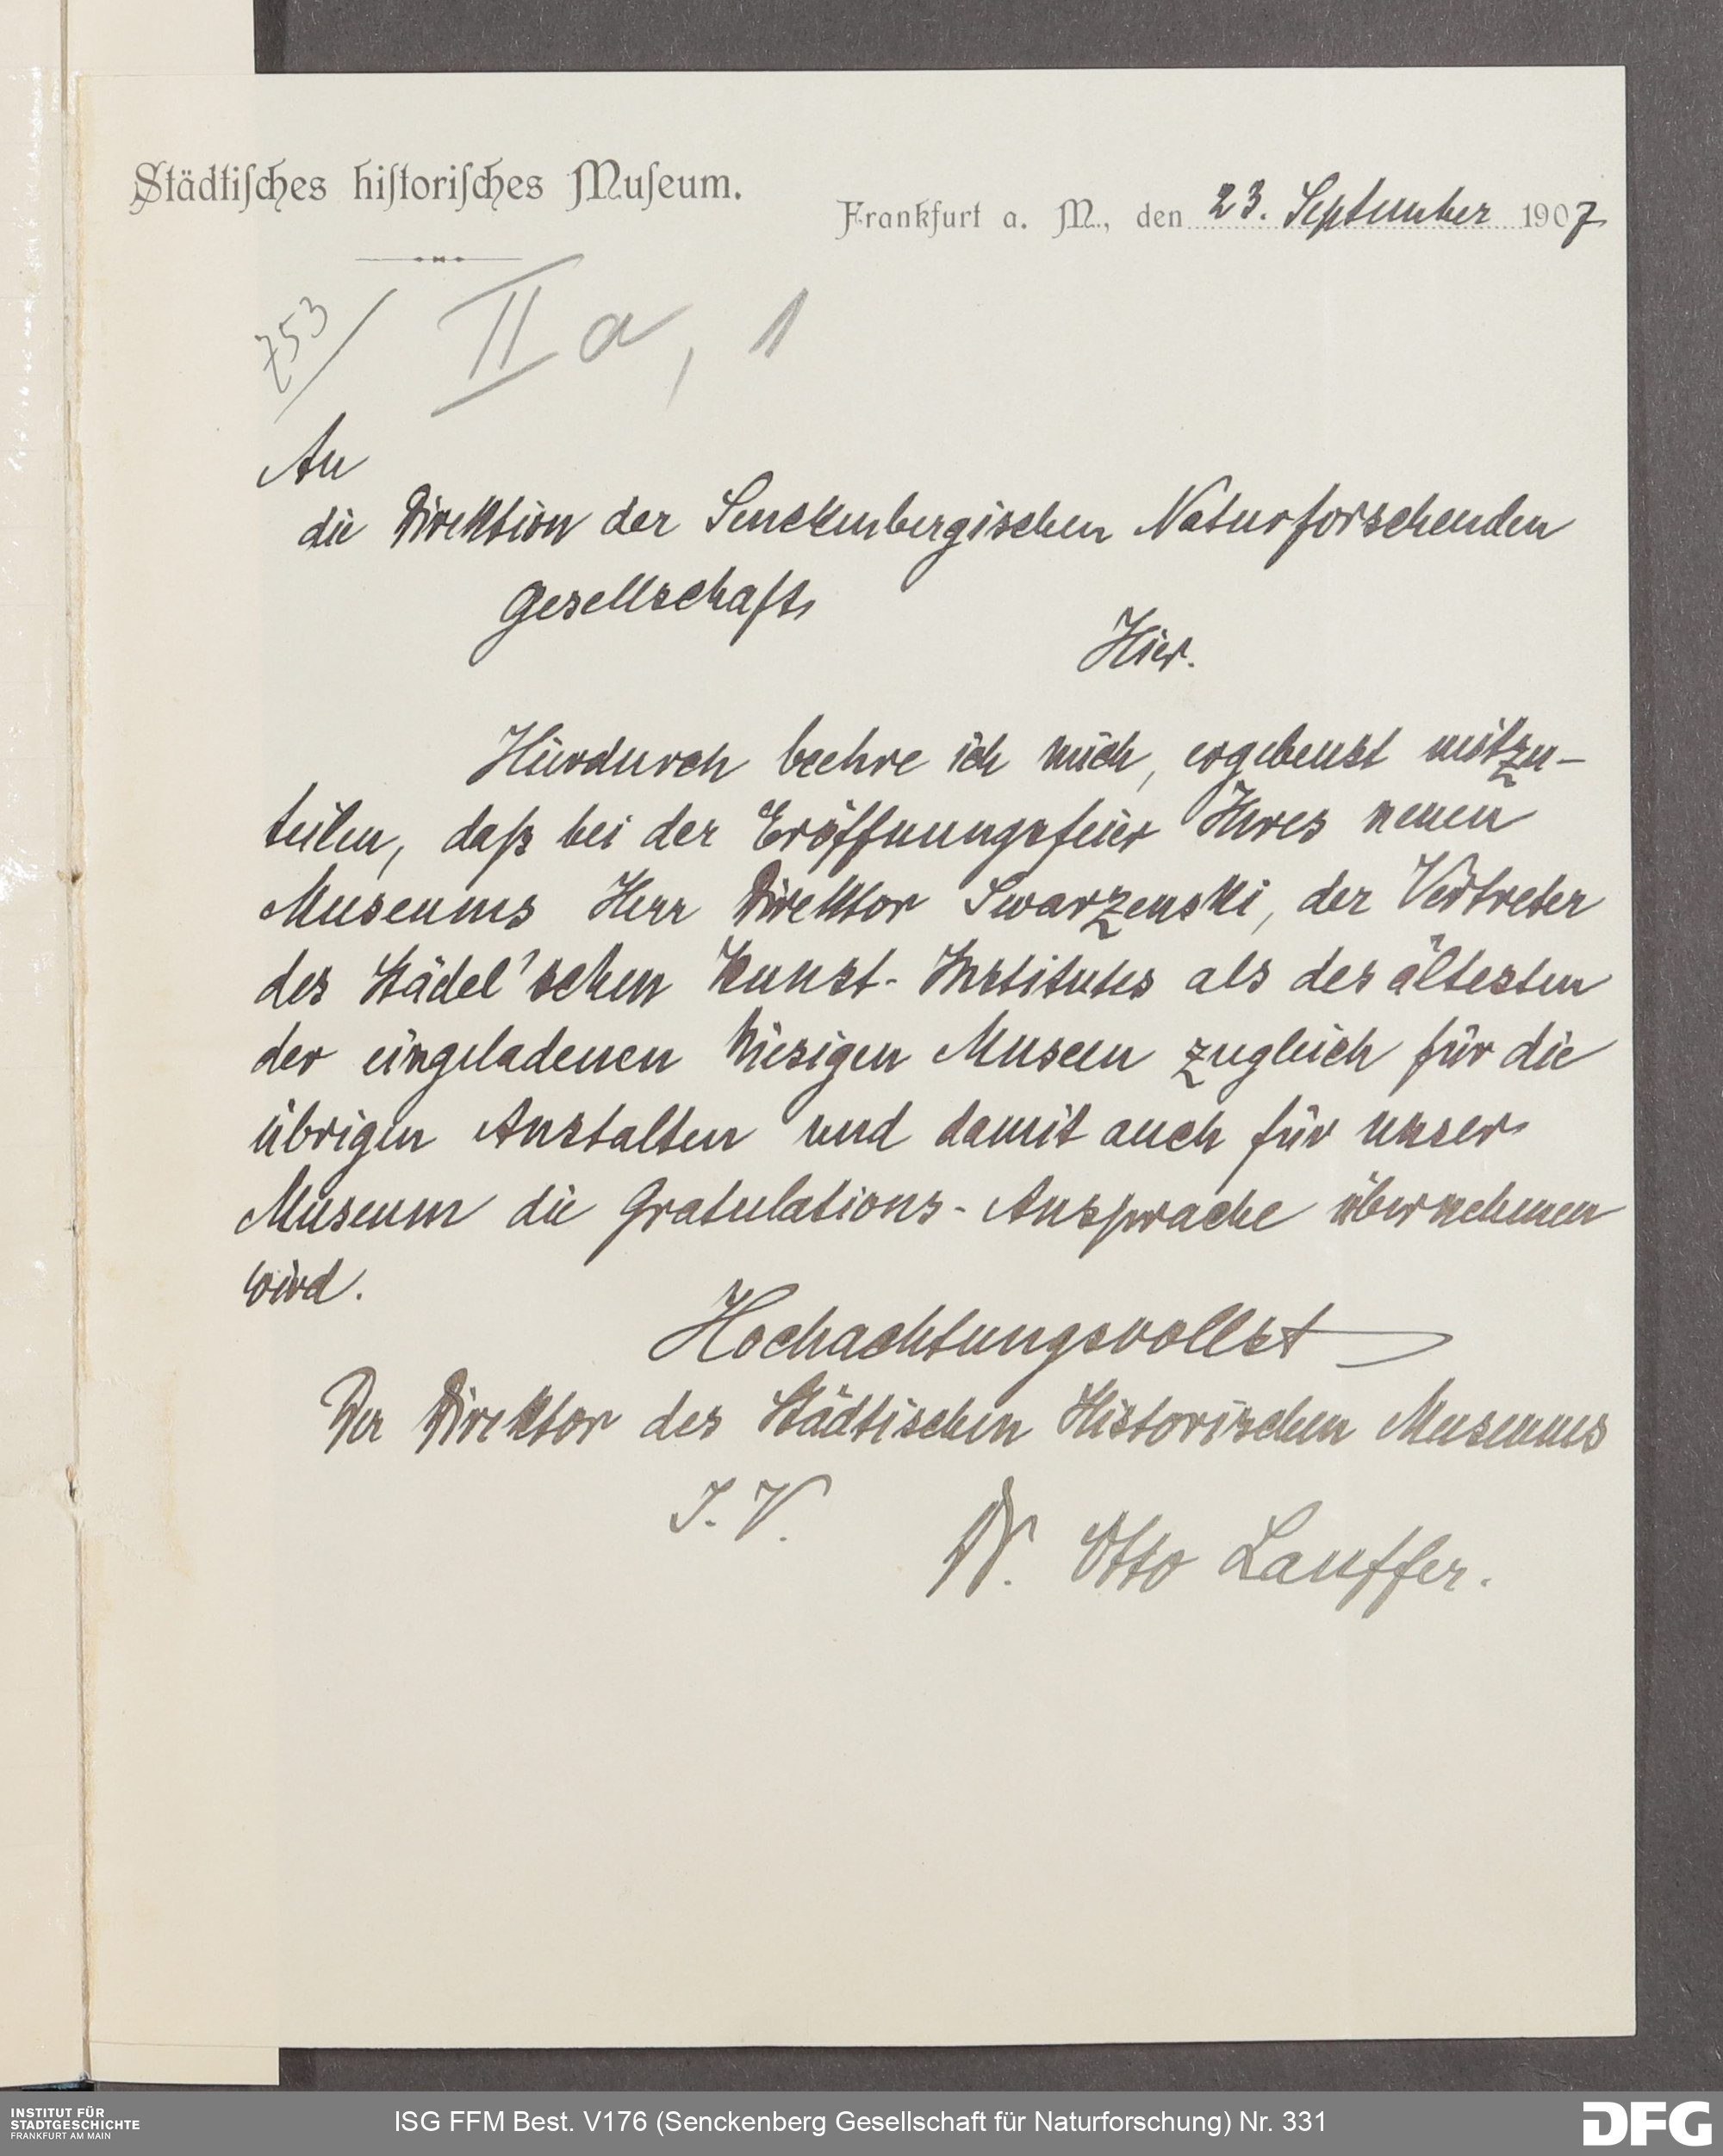 Städtisches historisches Museum.
Frankfurt a. M., den 23. September 1907
753/
II a, 1
An
die Direktion der Senckenbergischen Naturforschenden
Gesellschaft,
Hier.
Hierdurch beehre ich mich, ergebenst mitzu-
teilen, daß bei der Eröffnungsfeier Ihres neuen
Museums Herr Direktor Swarzenski, der Vertreter
des Städel'schen Kunst-Institutes als des ältesten
der eingeladenen hiesigen Museen zugleich für die
übrigen Anstalten und damit auch für unser
Museum die Gratulations-Ansprache übernehmen
wird.
Hochachtungsvollst
Der Direktor des Städtischen Historischen Museums
I. V.
Dr. Otto Lauffer.
INSTITUT FÜR
STADTGESCHICHTE
FRANKFURT AM MAIN
ISG FFM Best. V176 (Senckenberg Gesellschaft für Naturforschung) Nr. 331
DFG